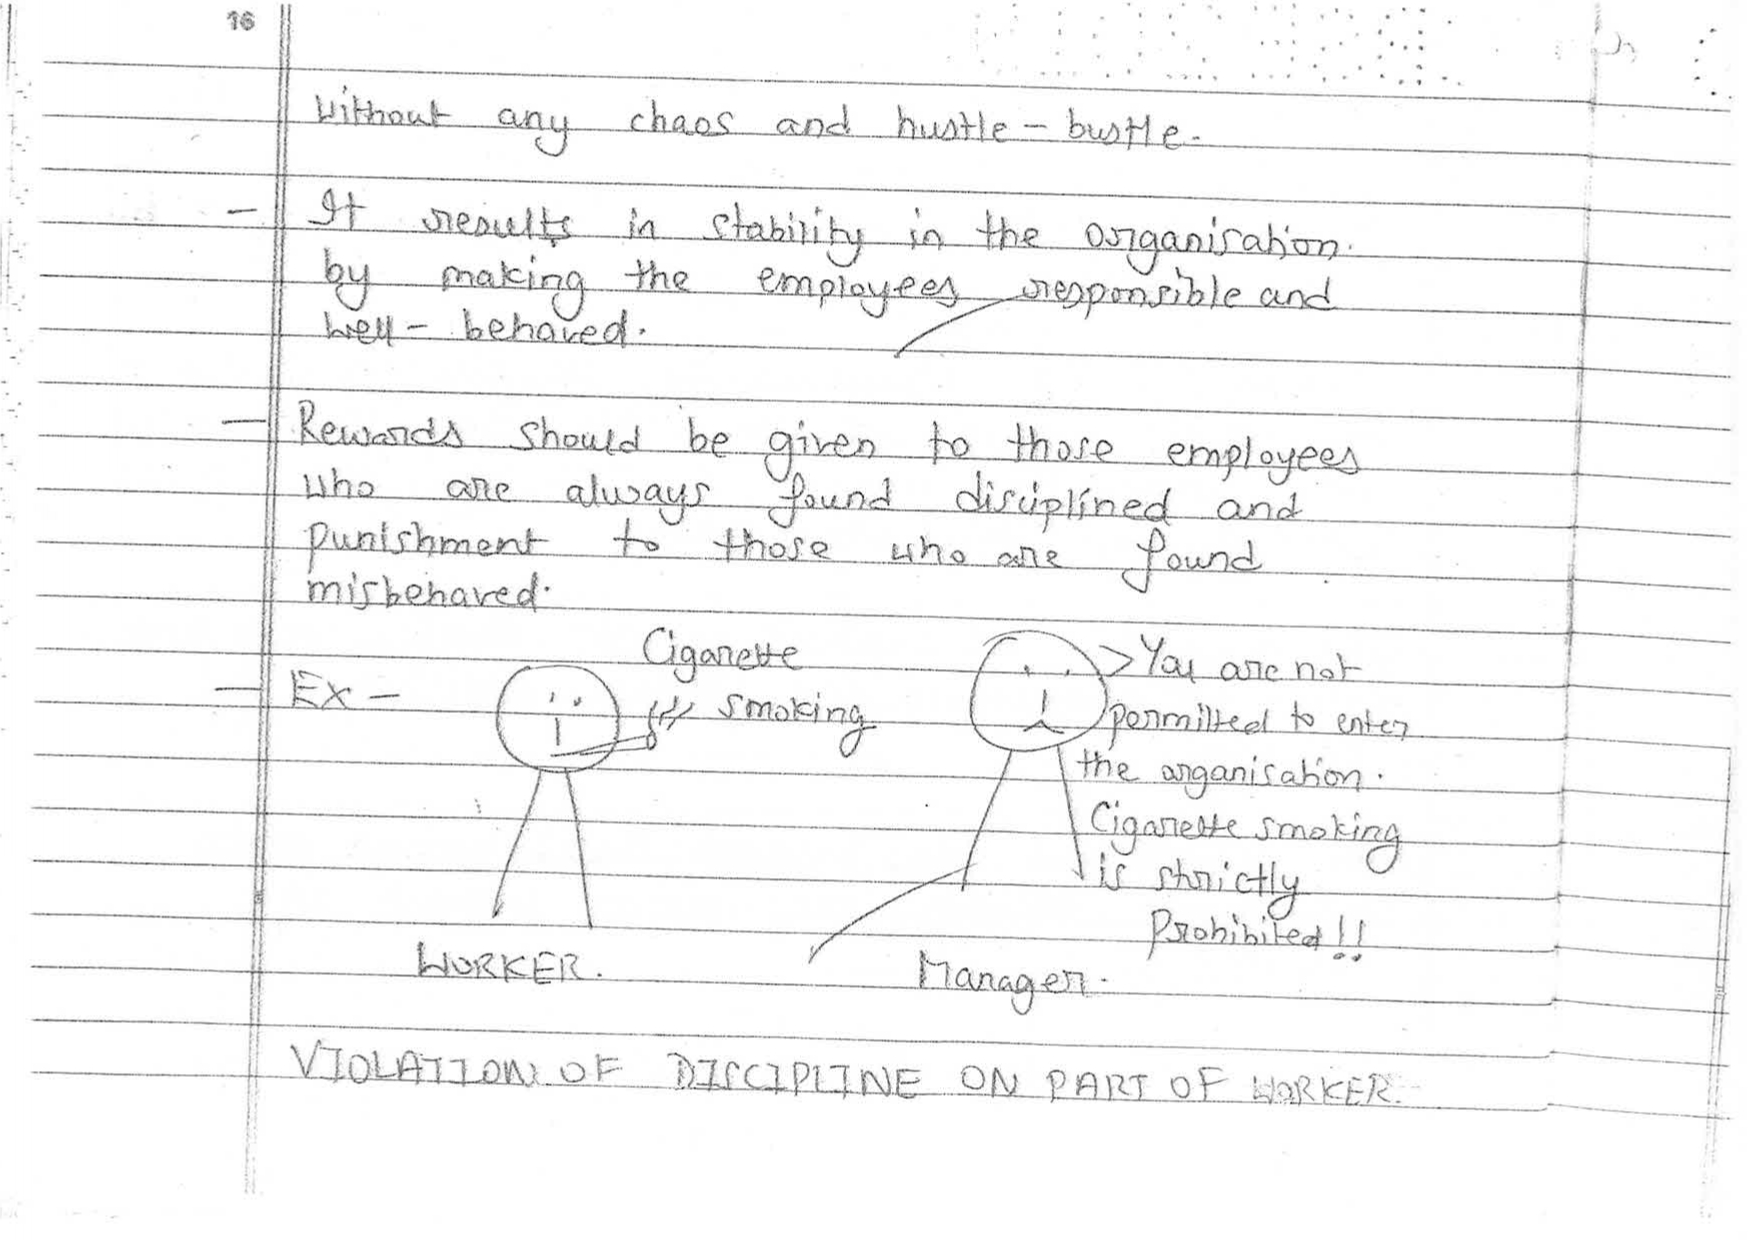 16
without any chaos and hustle-bustle.
- It results in stability in the organisation.
by making the employees responsible and
well-behaved.
- Rewards should be given to those employees
who are always found disciplined and
punishment to those who are found
misbehaved.
Cigarette
- Ex -
smoking
> You are not
permitted to enter
the organisation.
Cigarette smoking
is strictly
Prohibited!!
WORKER.
Manager.
VIOLATION OF DISCIPLINE ON PART OF WORKER.